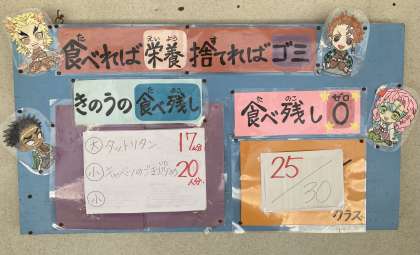 食べれば栄養捨てればゴミ
きのうの食べ残し
大 タットリタン 17人分
小 キャベツのごまじょうゆ 20人分
小
食べ残し0
25/30
クラス